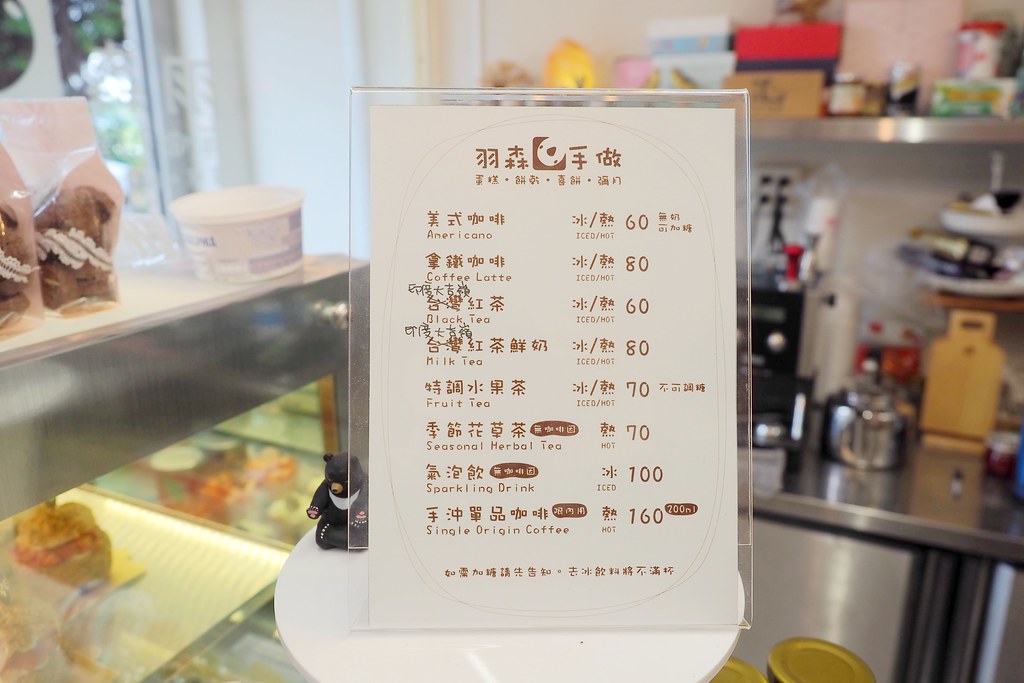 羽森手做
蛋糕・餅乾・喜餅・彌月
美式咖啡 冰/熱 60 無奶 可加糖
Americano ICED/HOT
拿鐵咖啡 冰/熱 80
Coffee Latte ICED/HOT
印度大吉嶺
台灣紅茶 冰/熱 60
Black Tea ICED/HOT
印度大吉嶺
台灣紅茶鮮奶 冰/熱 80
Milk Tea ICED/HOT
特調水果茶 冰/熱 70 不可調糖
Fruit Tea ICED/HOT
季節花草茶 無咖啡因 熱 70
Seasonal Herbal Tea HOT
氣泡飲 無咖啡因 冰 100
Sparkling Drink ICED
手沖單品咖啡 限內用 熱 160 200ml
Single Origin Coffee HOT
如需加糖請先告知。去冰飲料將不滿杯